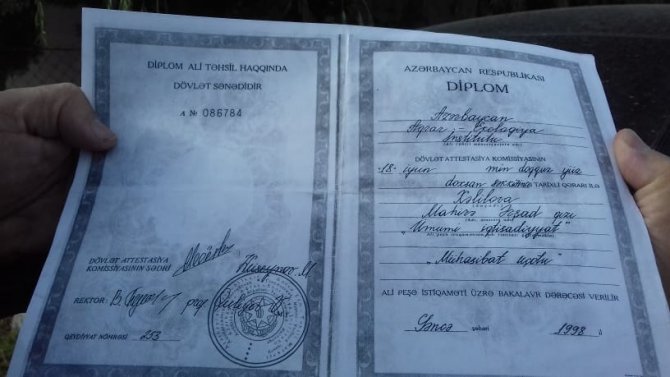 DİPLOM ALİ TƏHSİL HAQQINDA
DÖVLƏT SƏNƏDİDİR
A № 086784
DÖVLƏT ATTESTASİYA
KOMİSSİYASININ SƏDRİ
Hüseynov M
REKTOR: prof
QEYDİYYAT NÖMRƏSİ 253
AZƏRBAYCAN RESPUBLİKASI
DİPLOM
Azərbaycan
Aqrar - Ekologiya
İnstitutu
DÖVLƏT ATTESTASİYA KOMİSSİYASININ
"18" iyun min doqquz yüz
doxsan səkkiz TARİXLİ QƏRARI İLƏ
Xəlilova
Mahirə qızı
"Ümumi iqtisadiyyat"
"Mühasibat uçotu"
ALİ PEŞƏ İSTİQAMƏTİ ÜZRƏ BAKALAVR DƏRƏCƏSİ VERİLİR
Gəncə şəhəri 1998